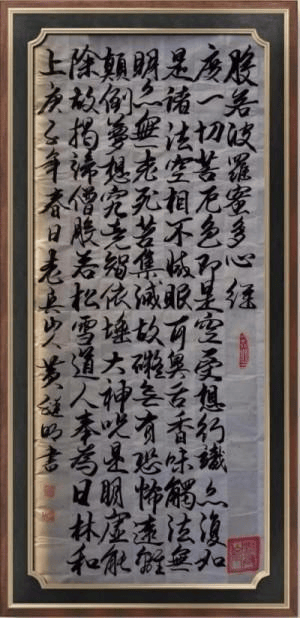 般若波羅蜜多心經
度一切苦厄色即是空受想行識亦復如
是諸法空相不滅眼耳鼻舌香味觸法無
明亦無老死苦集滅故礙無有恐怖遠離
顛倒夢想究竟智依埵大神咒是明虛能
除故揭諦僧般若松雪道人奉為日林和
上庚子年春日老山人黃明書